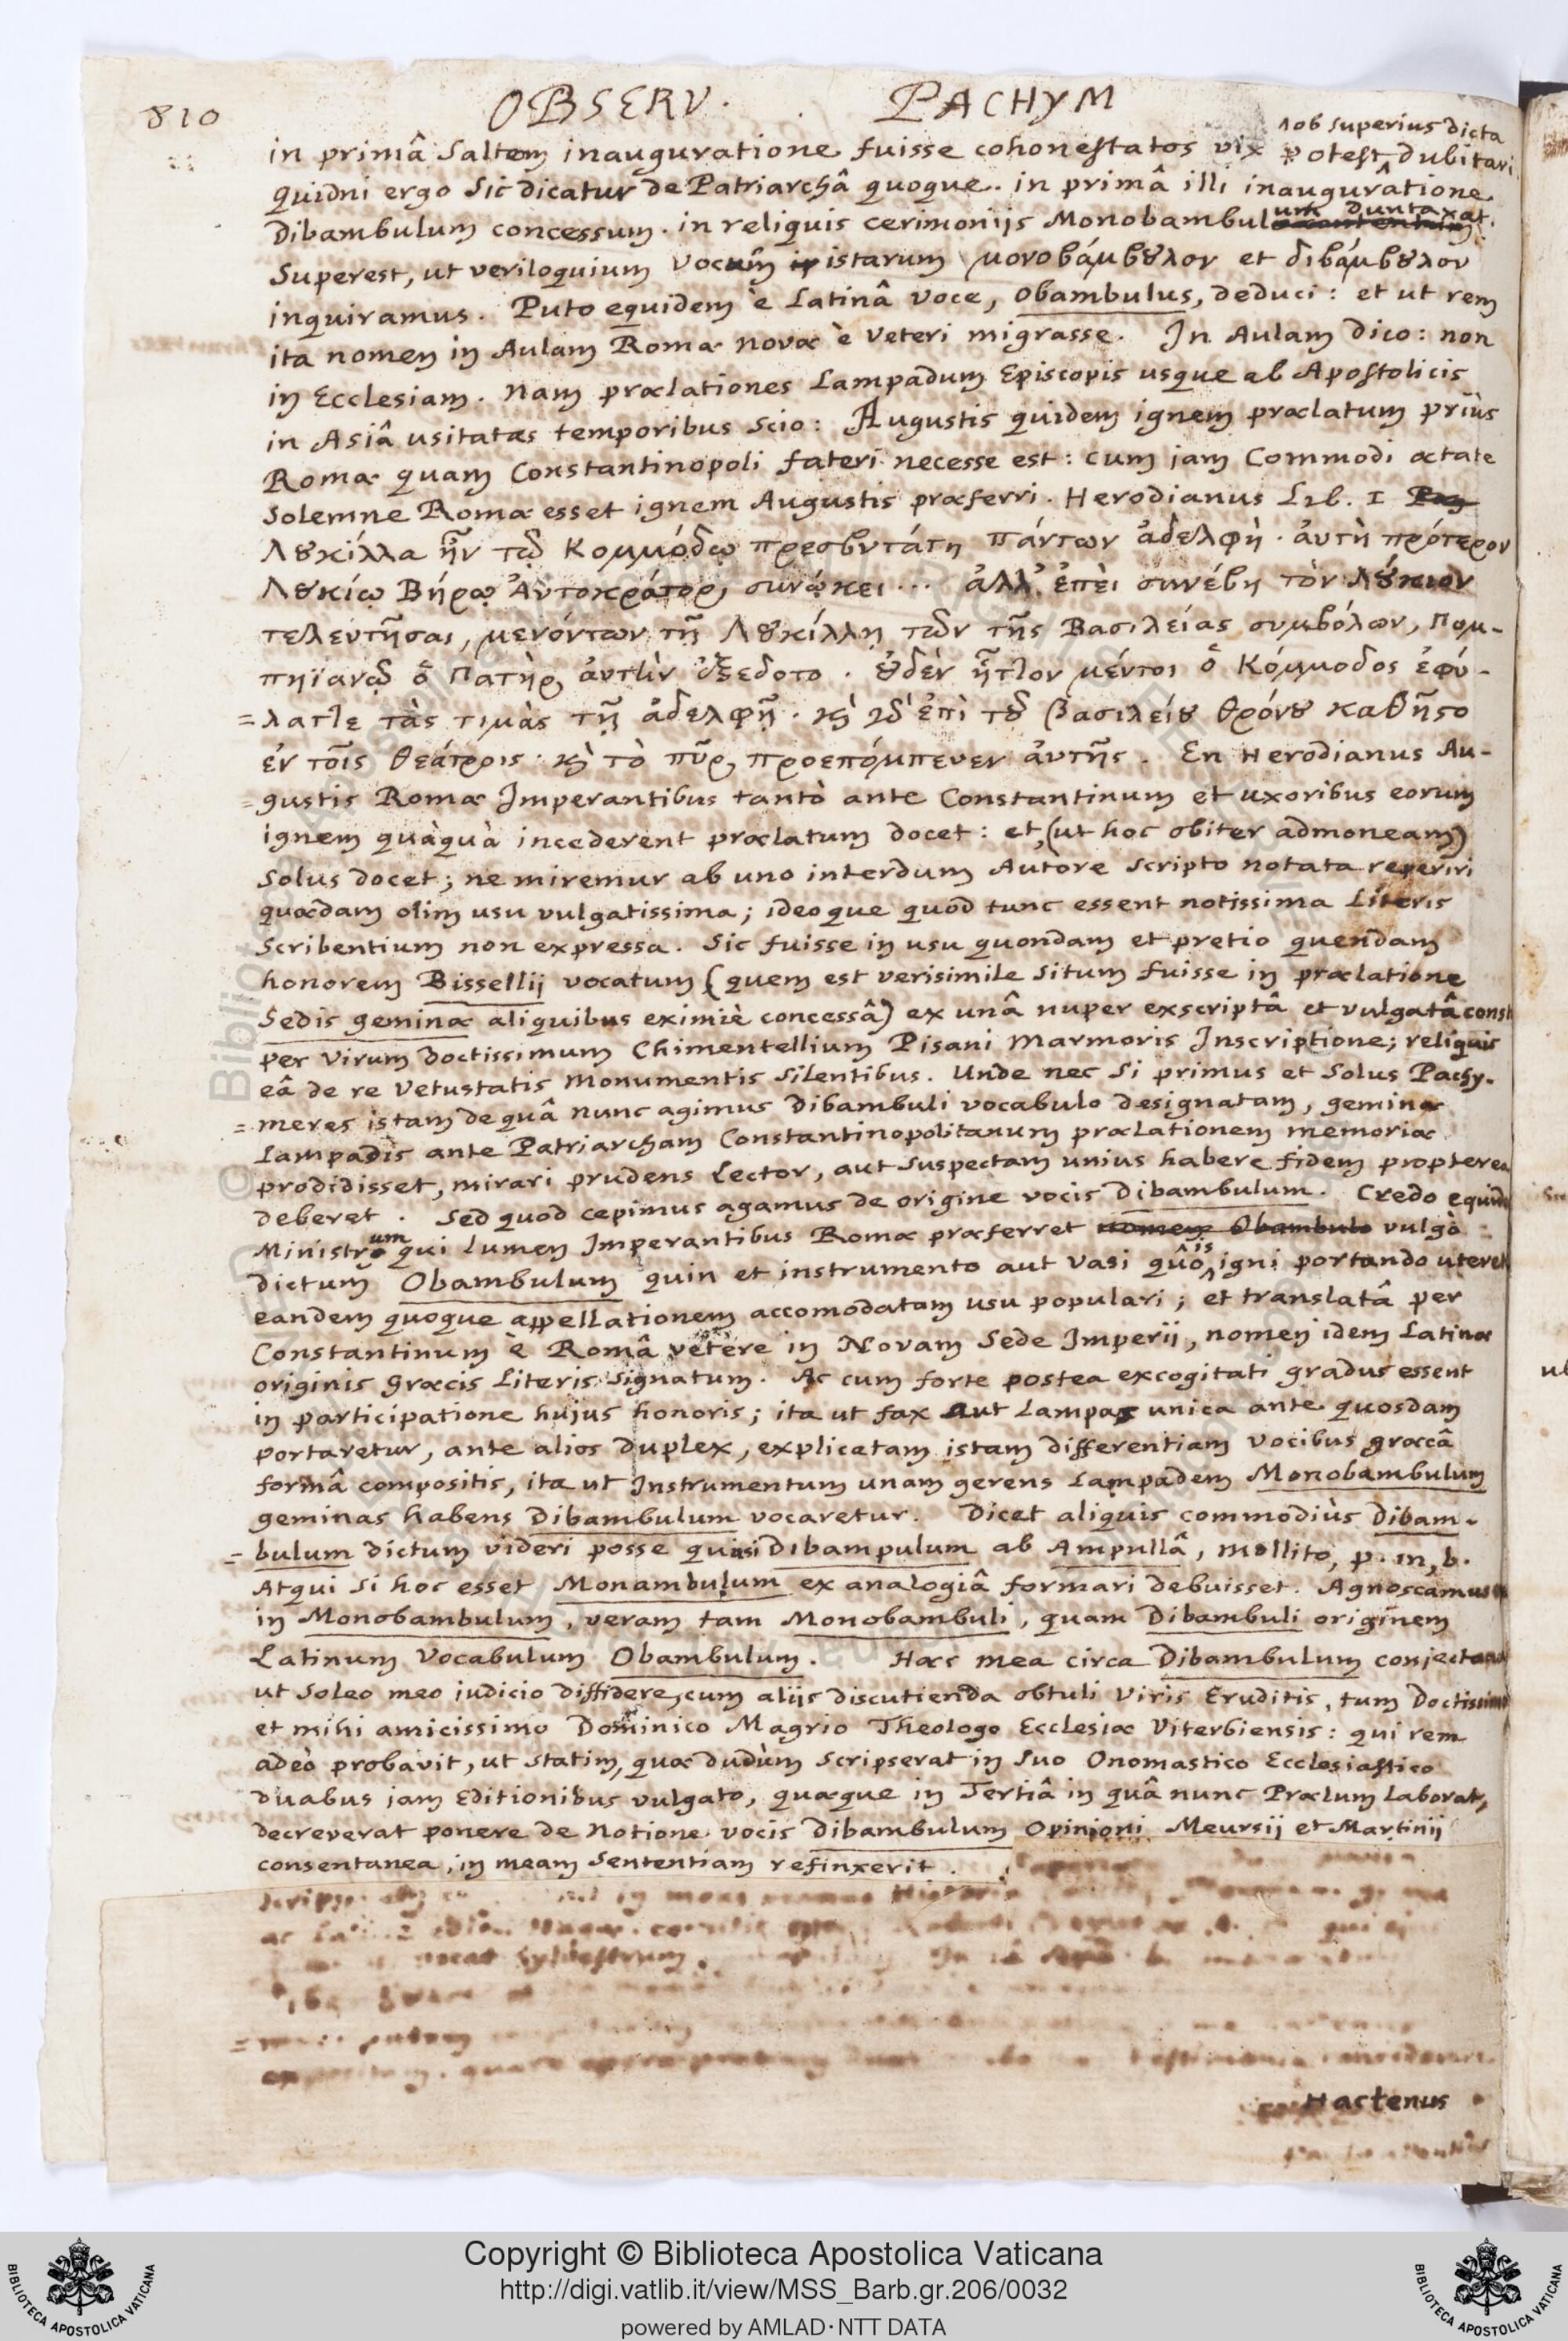 810 OBSERV. PACHYM
ob superius dicta
in primâ Saltem inauguratione fuisse cohonestatos vix potest dubitari
quidni ergo Sic dicatur de Patriarchâ quoque. in primâ illi inauguratione
um duntaxat.
Dibambulum concessum. in reliquis cerimoniis Monobambul
Superest, ut veriloquium vocum istarum μονοβάμβȣλον et διβάμβȣλον
inquiramus. Puto equidem è Latinâ voce, Obambulus, deduci: et ut rem
ita nomen in Aulam Romæ novæ è Veteri migrasse. In Aulam dico: non
in Ecclesiam. Nam prælationes Lampadum Episcopis usque ab Apostolicis
in Asiâ usitatas temporibus Scio: Augustis quidem ignem prælatum priùs
Romæ quam Constantinopoli fateri necesse est: cum jam Commodi ætate
Solemne Romæ esset ignem Augustis præferri. Herodianus Lib. I Pag
Λȣκίλλα ἦν τῷ Κομμόδῳ πρεσβυτάτη πάντων ἀδελφὴ. ἀυτὴ πρότερον
Λȣκίῳ Βήρῳ Ἀυτοκράτορι συνῴκει ... ἀλλ' ἐπεὶ συνέβη τὸν Λȣκιον
τελευτῆσαι, μενόντων τῇ Λȣκίλλῃ τῶν τῆς Βασιλείας συμβόλων, Πομ-
πηϊανῷ ὁ Πατὴρ ἀυτὴν ἐξέδοτο. ȣδὲν ἧττον μέντοι ὁ Κόμμοδος ἐφύ-
=λαττε τὰς τιμὰς τῇ ἀδελφῇ. κὶ ἐπὶ τȣ βασιλείȣ θρόνȣ καθῆςο
ἐν τοῖς θεάτροις. κὶ τὸ πῦρ προεπόμπευεν ἀυτῆς. En Herodianus Au-
=gustis Romæ Imperantibus tantò ante Constantinum et uxoribus eorum
ignem quàquà incederent prælatum docet: et, (ut hoc obiter admoneam)
Solus docet; ne miremur ab uno interdum Autore scripto notata reperiri
quædam olim usu vulgatissima; ideoque quod tunc essent notissima Literis
Scribentium non expressa. Sic fuisse in usu quondam et pretio quendam
honorem Bissellij vocatum (quem est verisimile Situm fuisse in prælatione
Sedis geminæ aliquibus eximiè concessâ) ex unâ nuper exscriptâ et vulgatâ const
per Virum doctissimum Chimentellium Pisani Marmoris Inscriptione; reliquis
eâ de re Vetustatis Monumentis Silentibus. Unde nec Si primus et Solus Pachy-
=meres istam de quâ nunc agimus Dibambuli vocabulo designatam, geminæ
Lampadis ante Patriarcham Constantinopolitanum prælationem memoriæ
prodidisset, mirari prudens Lector, aut Suspectam unius habere fidem propterea
deberet. Sed quod cepimus agamus de origine vocis Dibambulum. Credo equid
Ministrum qui lumen Imperantibus Romæ præferret nomen Obambulo vulgò
dictum Obambulum quin et instrumento aut Vasi quô is igni portando uteret
eandem quoque appellationem accomodatam usu populari; et translatâ per
Constantinum è Româ vetere in Novam Sede Imperii, nomen idem Latinæ
originis græcis Literis Signatum. Ac cum forte postea excogitati gradus essent
in participatione hujus honoris; ita ut fax Aut Lampas unica ante quosdam
portaretur, ante alios duplex, explicatam istam differentiam vocibus græcâ
formâ compositis, ita ut Instrumentum unam gerens Lampadem Monobambulum
geminas habens Dibambulum vocaretur. Dicet aliquis commodiùs Dibam-
=bulum dictum videri posse quasi Dibampulum ab Ampullâ, mollito, p. in, b.
Atqui Si hoc esset Monambulum ex analogiâ formari debuisset. Agnoscamus
in Monobambulum, veram tam Monobambuli, quam Dibambuli originem
Latinum Vocabulum Obambulum. Hæc mea circa Dibambulum conjectans
ut Soleo meo judicio diffidere, cum aliis discutienda obtuli Viris Eruditis, tum Doctissimo
et mihi amicissimo Dominico Magrio Theologo Ecclesiæ Viterbiensis: qui rem
adeò probavit, ut statim, quæ dudùm Scripserat in Suo Onomastico Ecclesiastico
duabus jam Editionibus vulgato, quæque in Tertiâ in quâ nunc Prælum Laborat,
decreverat ponere de Notione vocis Dibambulum Opinioni Meursii et Martinii
consentanea, in meam Sententiam refinxerit.
vocat Sylvestrum.
Hactenus
Copyright © Biblioteca Apostolica Vaticana
http://digi.vatlib.it/view/MSS_Barb.gr.206/0032
powered by AMLAD·NTT DATA
BIBLIOTECA APOSTOLICA VATICANA
BIBLIOTECA APOSTOLICA VATICANA